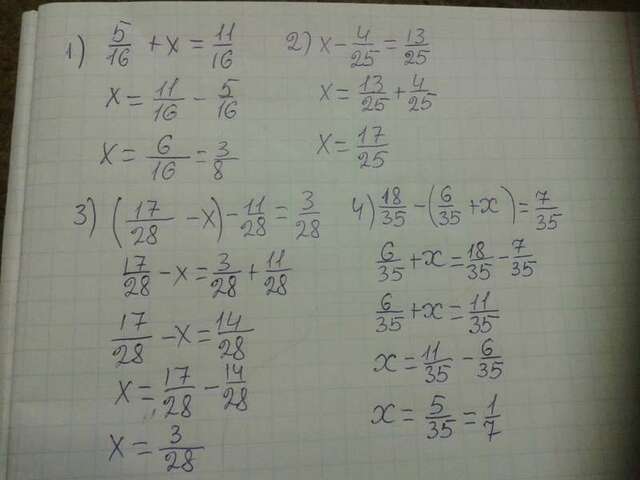 1) 5/16 + x = 11/16
x = 11/16 - 5/16
x = 6/16 = 3/8
2) x - 4/25 = 13/25
x = 13/25 + 4/25
x = 17/25
3) (17/28 - x) - 11/28 = 3/28
17/28 - x = 3/28 + 11/28
17/28 - x = 14/28
x = 17/28 - 14/28
x = 3/28
4) 18/35 - (6/35 + x) = 7/35
6/35 + x = 18/35 - 7/35
6/35 + x = 11/35
x = 11/35 - 6/35
x = 5/35 = 1/7